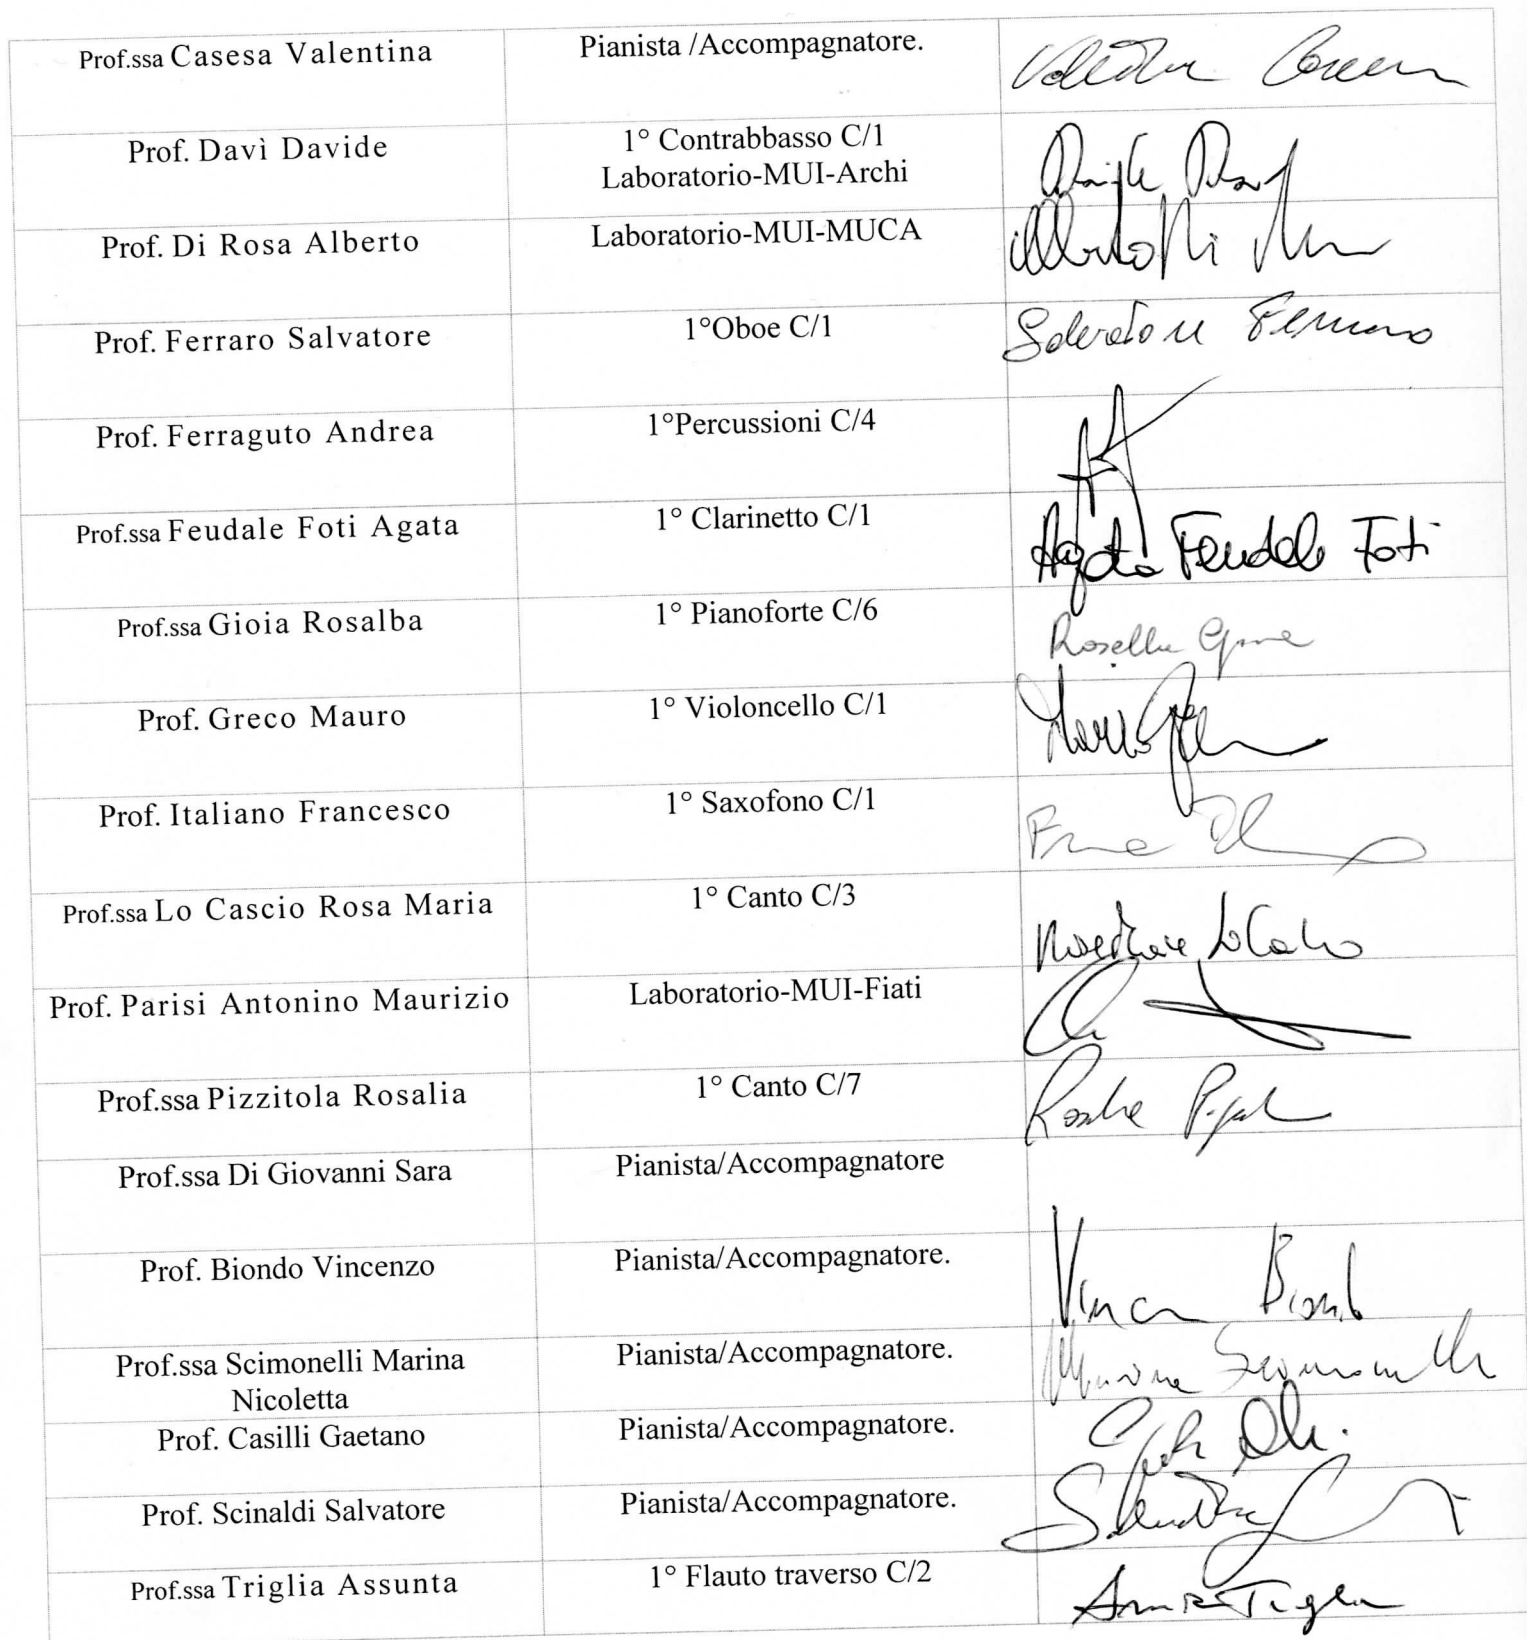 Prof.ssa Casesa Valentina Pianista /Accompagnatore.
Prof. Davì Davide 1° Contrabbasso C/1
Laboratorio-MUI-Archi
Prof. Di Rosa Alberto Laboratorio-MUI-MUCA
Alberto Di
Prof. Ferraro Salvatore 1°Oboe C/1 Salvatore Ferraro
Prof. Ferraguto Andrea 1°Percussioni C/4
Prof.ssa Feudale Foti Agata 1° Clarinetto C/1 Agata Feudale Foti
Prof.ssa Gioia Rosalba 1° Pianoforte C/6
Prof. Greco Mauro 1° Violoncello C/1
Prof. Italiano Francesco 1° Saxofono C/1
Prof.ssa Lo Cascio Rosa Maria 1° Canto C/3
Prof. Parisi Antonino Maurizio Laboratorio-MUI-Fiati
Prof.ssa Pizzitola Rosalia 1° Canto C/7
Prof.ssa Di Giovanni Sara Pianista/Accompagnatore
Prof. Biondo Vincenzo Pianista/Accompagnatore.
Prof.ssa Scimonelli Marina Pianista/Accompagnatore.
Nicoletta
Prof. Casilli Gaetano Pianista/Accompagnatore.
Prof. Scinaldi Salvatore Pianista/Accompagnatore.
Prof.ssa Triglia Assunta 1° Flauto traverso C/2